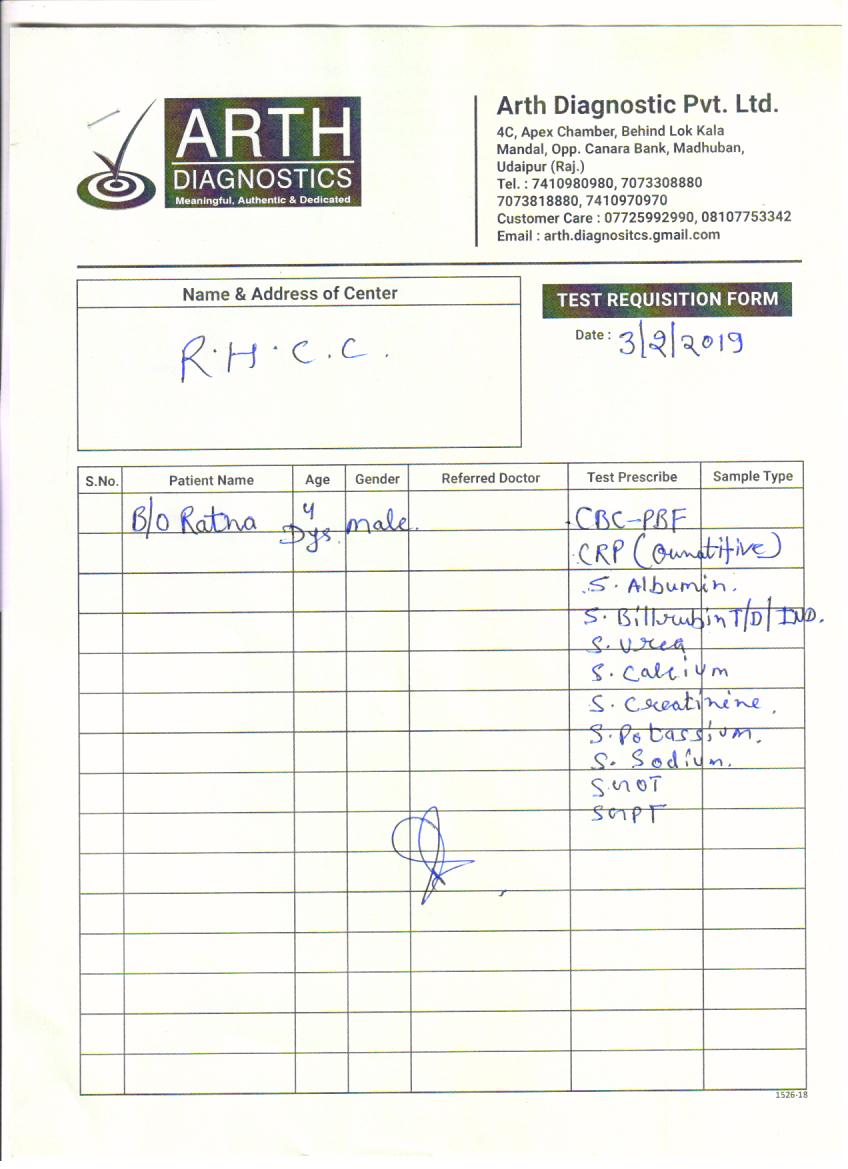 ARTH
DIAGNOSTICS
Meaningful, Authentic & Dedicated
Arth Diagnostic Pvt. Ltd.
4C, Apex Chamber, Behind Lok Kala
Mandal, Opp. Canara Bank, Madhuban,
Udaipur (Raj.)
Tel. : 7410980980, 7073308880
7073818880, 7410970970
Customer Care : 07725992990, 08107753342
Email : arth.diagnositcs.gmail.com
Name & Address of Center
R.H.C.C.
TEST REQUISITION FORM
Date : 3/2/2019
S.No. Patient Name Age Gender Referred Doctor Test Prescribe Sample Type
B/O Ratna 4 Dys. male. CBC-PBF
CRP (Qunatitive)
S. Albumin.
S. Billrubin T/D/IND.
S. Urea
S. Calcium
S. Creatinine.
S. Potassium.
S. Sodium.
SGOT
SGPT
1526-18